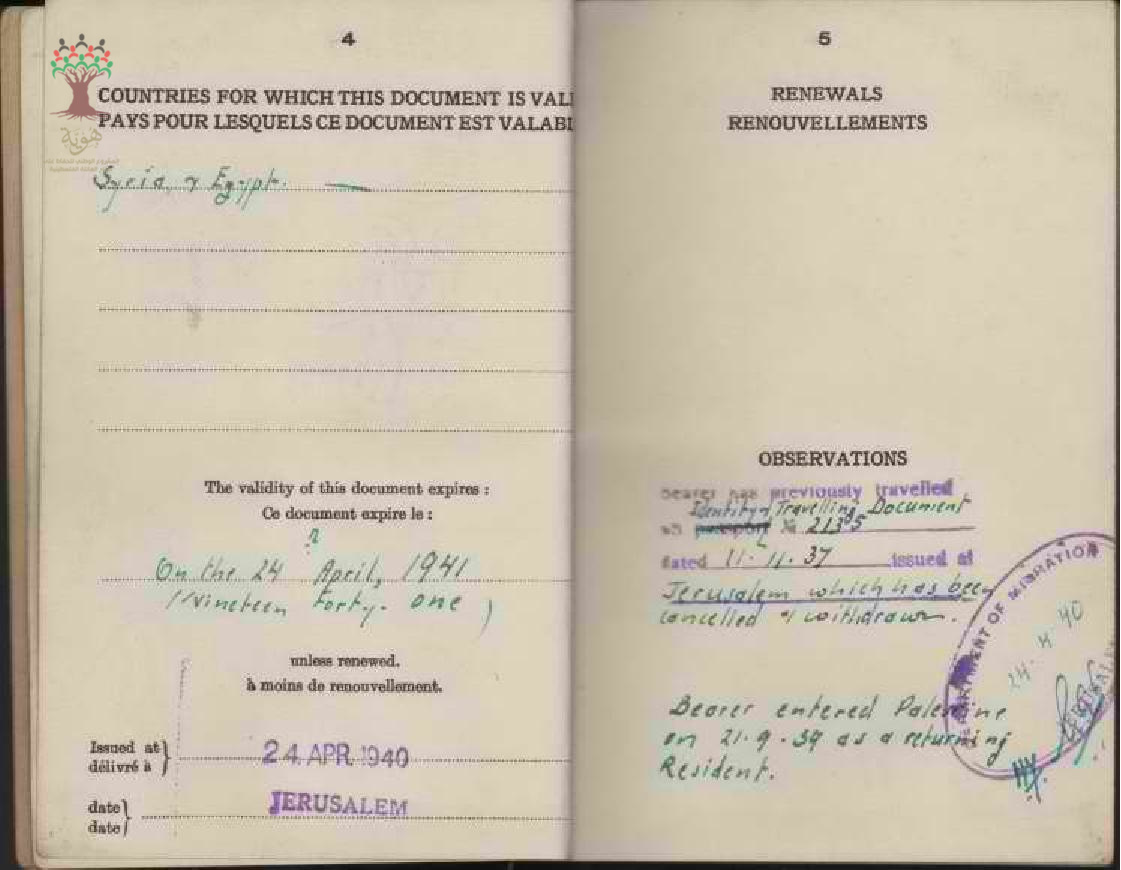 4
COUNTRIES FOR WHICH THIS DOCUMENT IS VALI
PAYS POUR LESQUELS CE DOCUMENT EST VALABI
هوية
Syria, & Egypt.
The validity of this document expires :
Ce document expire le :
On the 24 April, 1941
(Nineteen Forty-one)
unless renewed.
à moins de renouvellement.
Issued at
délivré à
24 APR 1940
JERUSALEM
date
date
5
RENEWALS
RENOUVELLEMENTS
OBSERVATIONS
Bearer has previously travelled
Identity Travelling Document
on passport № 21395
dated 11-11-37 issued at
Jerusalem which has been
cancelled & withdrawn.
Bearer entered Palestine
on 21.9.39 as a returning
Resident.
DEPARTMENT OF MIGRATION
24.4.40
JERUSALEM